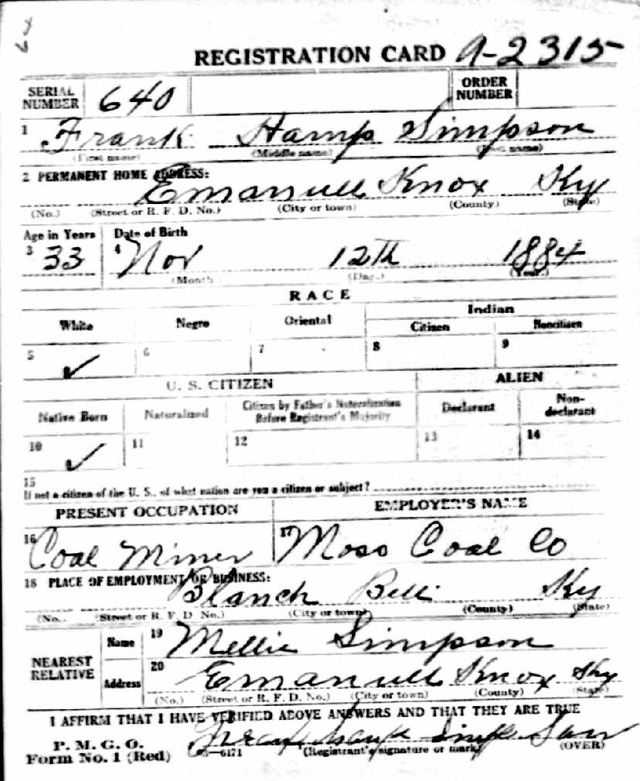 REGISTRATION CARD A-2315
SERIAL NUMBER 640 ORDER NUMBER
1 Frank Hamp Simpson
(First name) (Middle name) (Last name)
2 PERMANENT HOME ADDRESS:
Emanuel Knox Ky
(No.) (Street or R. F. D. No.) (City or town) (County) (State)
Age in Years Date of Birth
3 33 4 Nov 12th 1884
(Month) (Day) (Year)
RACE
White Negro Oriental Indian
Citizen Noncitizen
5 ✓ 6 7 8 9
U. S. CITIZEN ALIEN
Native Born Naturalized Citizen by Father's Naturalization Before Registrant's Majority Declarant Non-declarant
10 ✓ 11 12 13 14
15
If not a citizen of the U. S., of what nation are you a citizen or subject?
PRESENT OCCUPATION EMPLOYER'S NAME
16 Coal Miner 17 Moss Coal Co
18 PLACE OF EMPLOYMENT OR BUSINESS:
Blanch Bell Ky
(No. (Street or R. F. D. No.) (City or town) (County) (State)
NEAREST RELATIVE
Name 19 Mellie Simpson
Address 20 Emanuel Knox Ky
(No.) (Street or R. F. D. No.) (City or town) (County) (State)
I AFFIRM THAT I HAVE VERIFIED ABOVE ANSWERS AND THAT THEY ARE TRUE
P. M. G. O.
Form No. 1 (Red) 6171 (Registrant's signature or mark) (OVER)